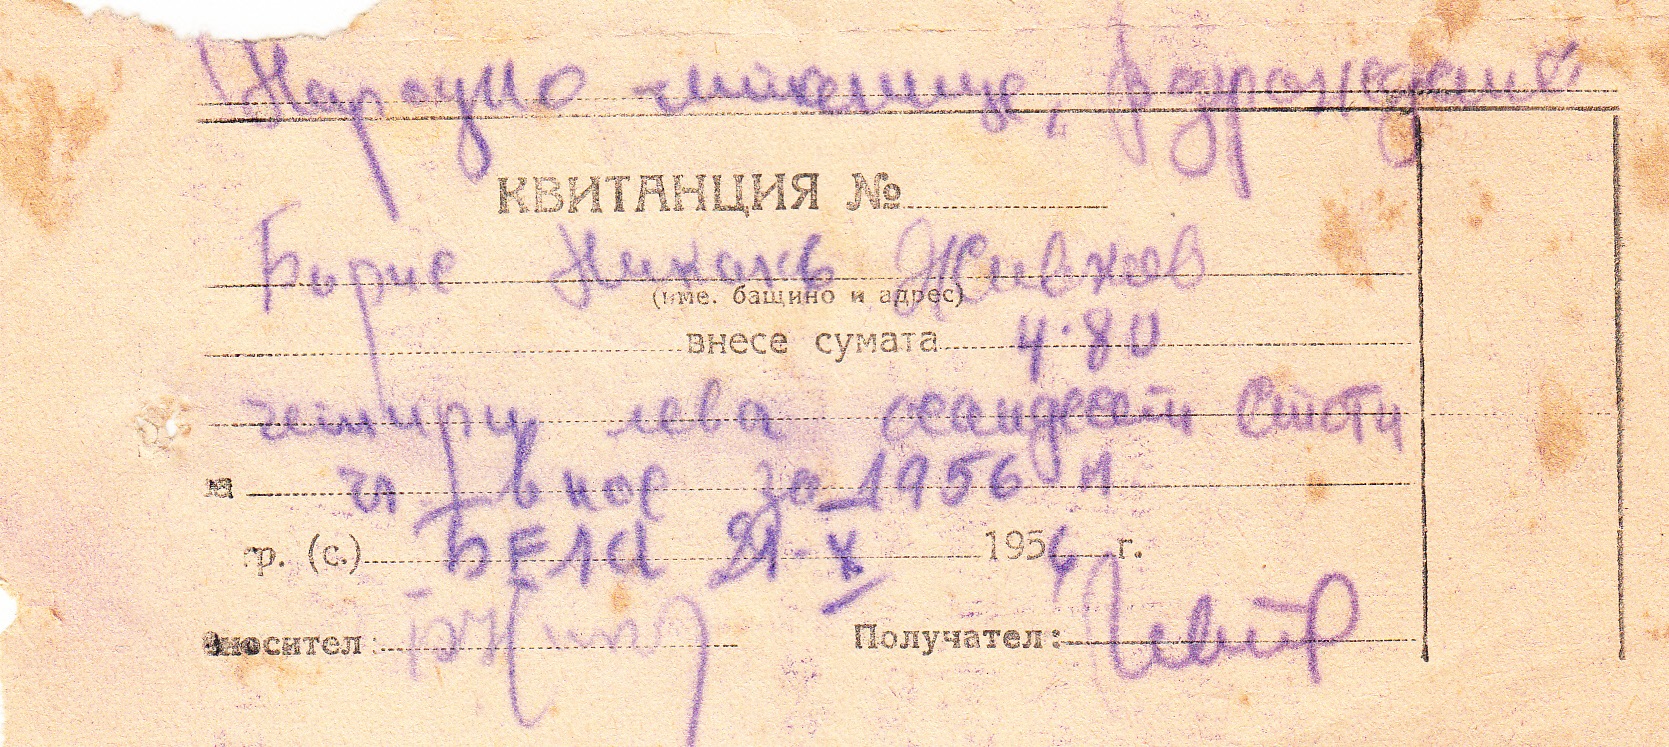 Народно читалище,
КВИТАНЦИЯ №
Борис Живков
(име. бащино и адрес)
внесе сумата 4·80
четири лева осемдесет стоти
чл внос за 1956 г
гр. (с.) БЕЛА 21·X 1956 г.
Вносител:
Получател: